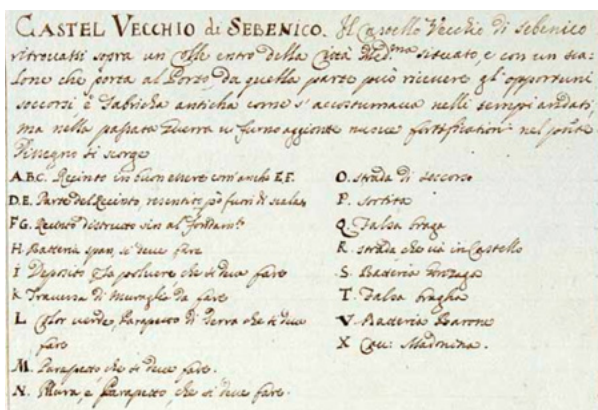 CASTEL VECCHIO di SEBENICO. Il Castello Vecchio di Sebenico
ritrovasi sopra un Colle entro della Città Med.ma situato, e con un sca-
lone che porta al Porto, da quella parte può ricevere gl'opportuni
soccorsi è fabricha anticha come s'accostumava nelli tempi andati,
ma nella passata Guerra vi furno aggionte nuove fortificationi nel pnte
Dissegno si scorge
A.B.C. Recinto in buon essere com'anche E.F.
D.E. Parte del Recinto, resentito pò fuori di scala
F G. Recinto distructo sin al fondamto
H. Batteria si deve fare
I Deposito p la polvere, che si deve fare
K Traversa di muraglia da fare
L Color verde, Parapetto di Terra che si deve
fare
M. Parapetto, che si deve fare.
N. Mura, e Parapetto, che si deve fare.
O. Strada di soccorso
P. Sortita
Q. Falsa braga
R. Strada che và in Castello
S. Batteria
T. Falsa bragha
V. Batteria Barone
X Madonina.